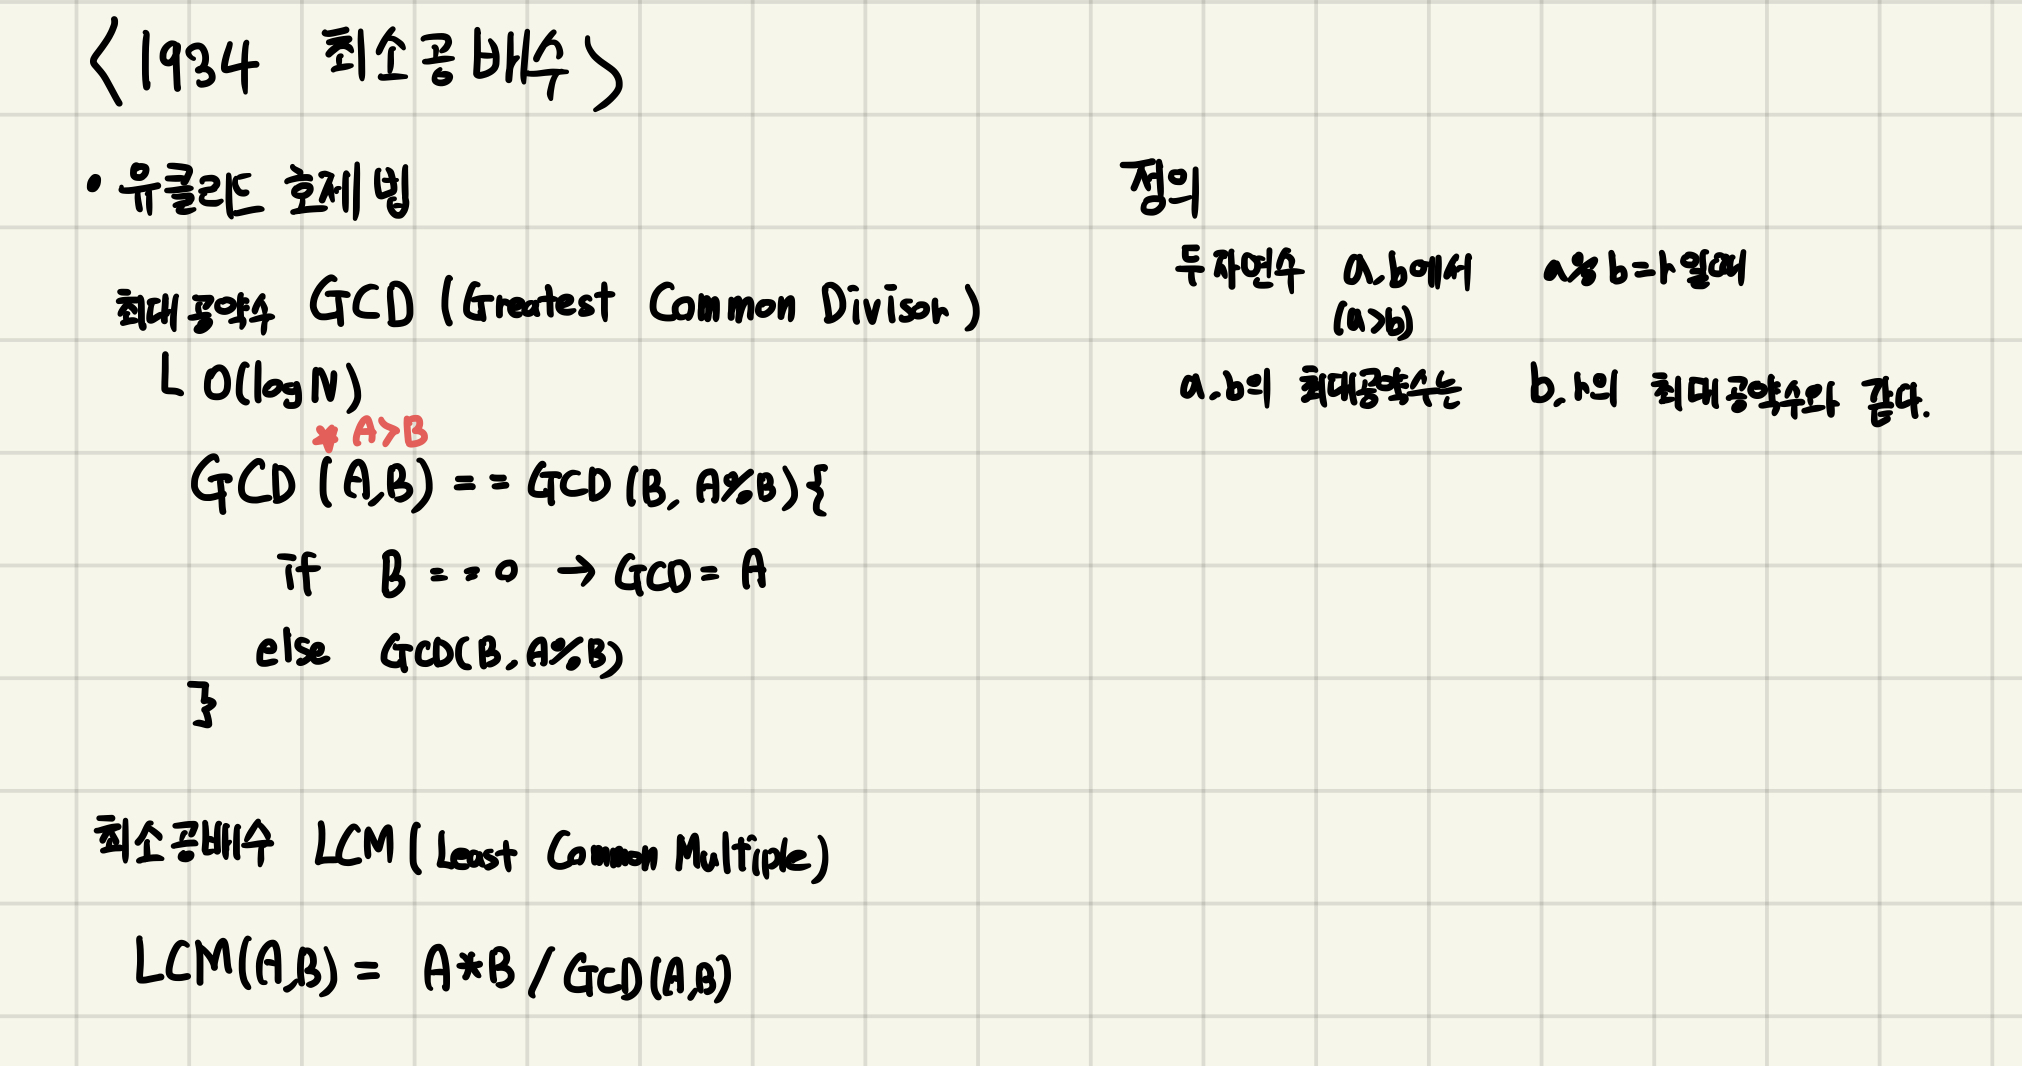 <1934 최소공배수>
• 유클리드 호제법
최대공약수 GCD (Greatest Common Divisor)
L O(logN)
* A>B
GCD (A,B) == GCD (B, A%B) {
if B == 0 → GCD = A
else GCD(B, A%B)
}
최소공배수 LCM (Least Common Multiple)
LCM(A,B) = A*B / GCD(A,B)
정의
두 자연수 a,b에서 a%b=r일때
(a>b)
a,b의 최대공약수는 b,r의 최대공약수와 같다.